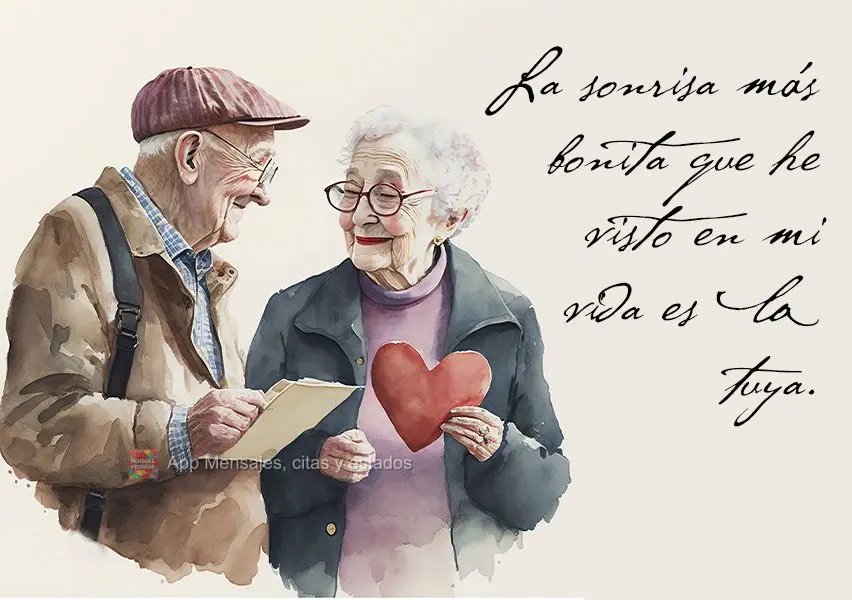 La sonrisa más
bonita que he
visto en mi
vida es la
tuya.
App Mensajes, citas y estados